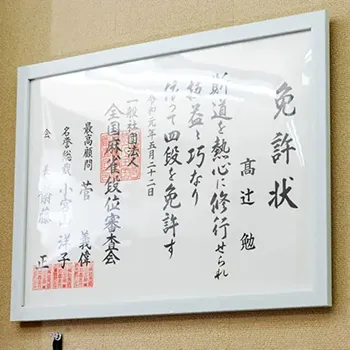 免許状
髙辻 勉
斯道を熱心に修行せられ
技益々巧なり
依って四段を免許す
令和元年五月二十二日
一般社団法人
全国麻雀段位審査会
最高顧問 菅 義偉
名誉総裁 小宮山 洋子
会長 謝藤 正